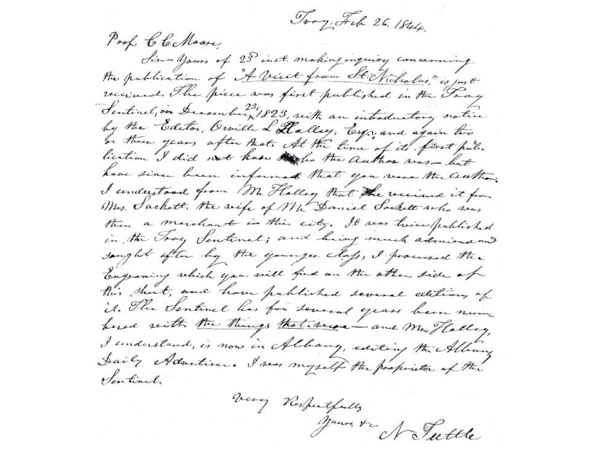 Troy, Feb. 26. 1844.
Prof. C. C. Moore,
Sir—Yours of 23d inst. making inquiry concerning
the publication of "A Visit from St. Nicholas," is just
received. The piece was first published in the Troy
Sentinel, on December 23, 1823, with an introductory notice
by the Editor, Orville L Holley, Esq., and again two
or three years after that. At the time of its first pub-
lication I did not know who the Author was—but
have since been informed that you were the author.
I understood from Mr Holley that he received it from
Mrs. Sackett, the wife of Mr. Daniel Sackett who was
then a merchant in this city. It was twice published
in the Troy Sentinel; and being much admired and
sought after by the younger class, I procured the
Engraving which you will find on the other side of
this sheet, and have published several editions of
it. The Sentinel has for several years been num
bered with the things that were—and Mr. Holley,
I understand, is now in Albany, editing the Albany
Daily Advertiser. I was myself the proprietor of the
Sentinel.
Very Respectfully
Yours, &c
N Tuttle